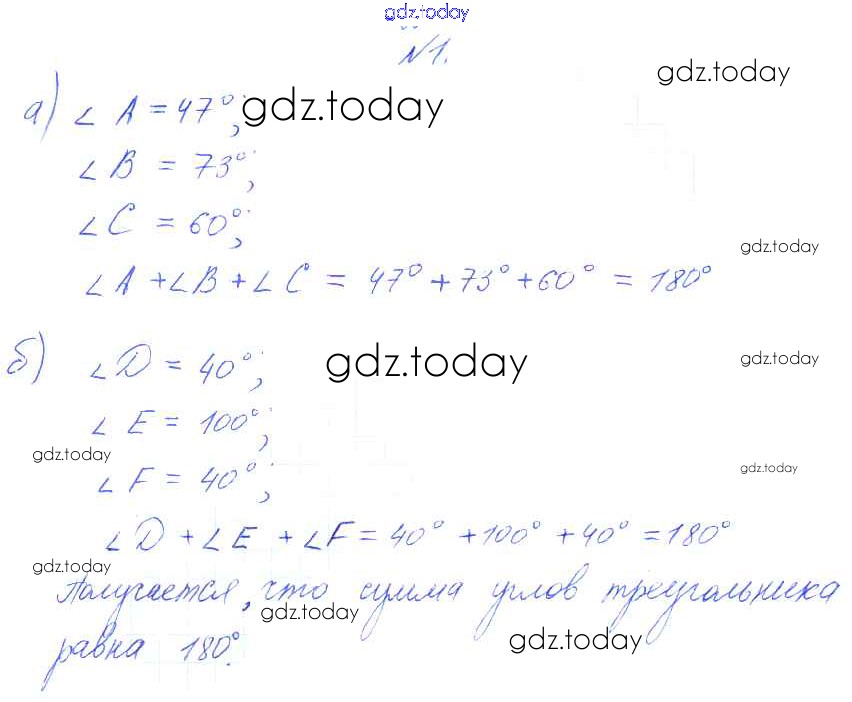 gdz.today
№1.
gdz.today
а) ∠ A = 47°; gdz.today
∠ B = 73°;
∠ C = 60°;
gdz.today
∠ A + ∠ B + ∠ C = 47° + 73° + 60° = 180°
б) ∠ D = 40°; gdz.today gdz.today
∠ E = 100°;
gdz.today
∠ F = 40°; gdz.today
∠ D + ∠ E + ∠ F = 40° + 100° + 40° = 180°
gdz.today
Получается, что сумма углов треугольника
gdz.today
равна 180°. gdz.today